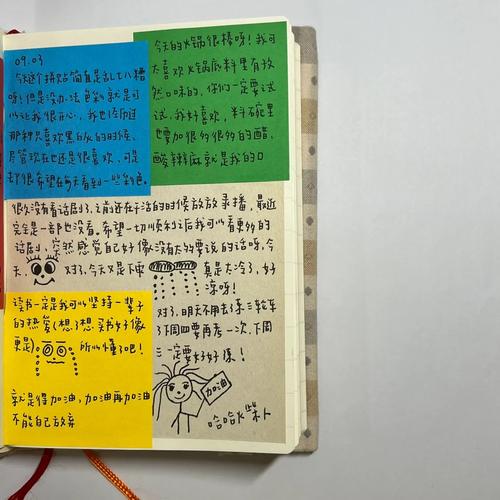 09.03
今天这个拼贴简直是乱七八糟
呀！但是没办法色彩就是可
以让我很开心，我也经历过
那种只喜欢黑白灰的时候，
尽管现在也还是很喜欢，可是
希望在每天看到一些彩色。
今天的火锅很棒呀！我可
太喜欢火锅底料里有孜
然口味的，你们一定要试
试，我好喜欢，料碗里
也要加很多很多的醋，
酸辣麻就是我的口
很久没有看话剧了，之前还在干活的时候放放录播，最近
完全是一部也没看。希望一切顺利之后我可以看更多的
话剧，突然感觉自己好像没有太多要说的话呀，今
天， 对了，今天又是下雨 真是太冷了，好
凉呀！
读书一定是我可以坚持一辈子
的热爱（想了想，买书好像
更是） 所以懂了吧！
就是得加油，加油再加油
不能自己放弃
对了，明天不用去练三轮车
了下周四要再考一次，下周
三一定要好好练！
加油
哈哈